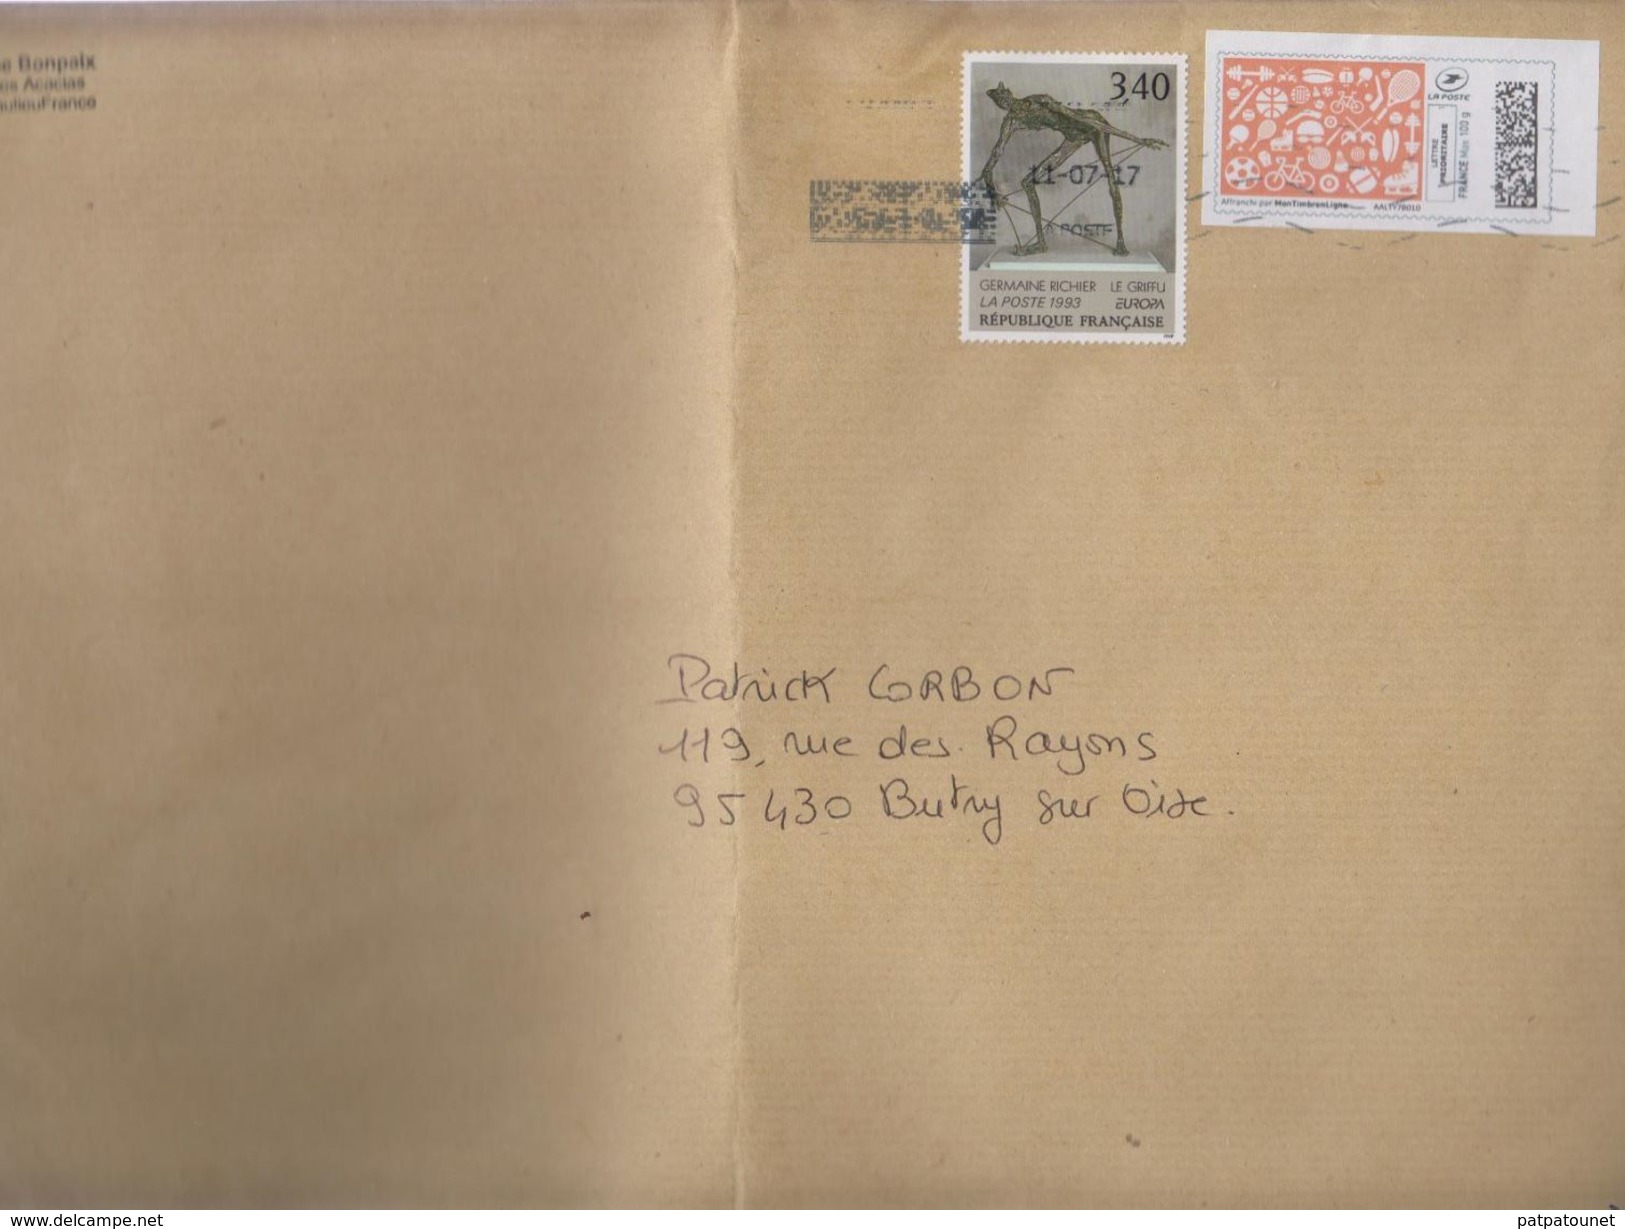 Bonpaix
Acacias
France
3,40
11-07-17
GERMAINE RICHIER LE GRIFFU
LA POSTE 1993 EUROPA
RÉPUBLIQUE FRANÇAISE
LA POSTE
LETTRE
PRIORITAIRE
FRANCE Max 100 g
Affranchi par MonTimbrenLigne
Patrick CORBON
119, rue des Rayons
95 430 Butry sur Oise.
www.delcampe.net
patpatounet